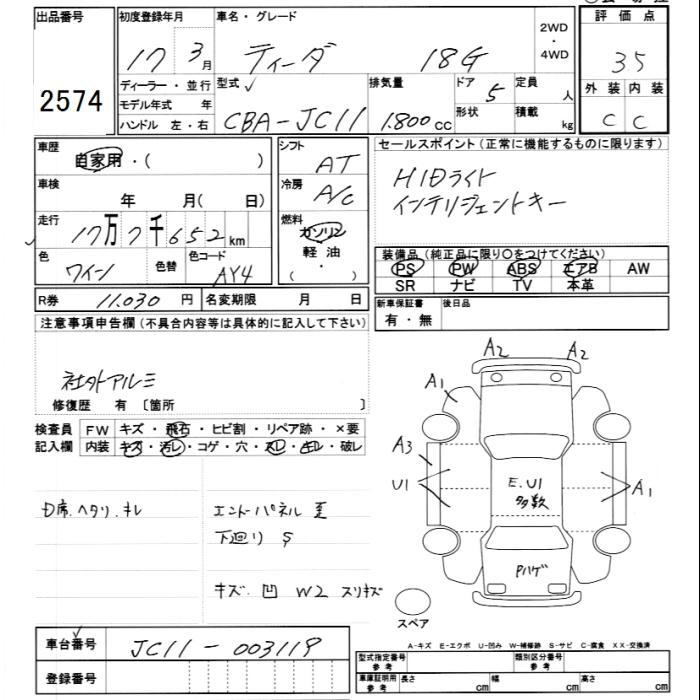 出品番号
2574
初度登録年月
17 3月
車名・グレード
ティーダ 18G
2WD
・
4WD
評価点
35
外装 内装
C C
ディーラー・並行
モデル年式 年
ハンドル 左・右
型式
CBA-JC11
排気量
1.800cc
ドア 5
形状
定員 人
積載 kg
車歴
自家用・( )
車検
年 月( 日)
走行
17万7千652km
色
ワイン
色替
色コード
AY4
シフト
AT
冷房
A/C
燃料
ガソリン
・
軽油
・
( )
セールスポイント(正常に機能するものに限ります)
HIDライト
インテリジェントキー
装備品(純正品に限り○をつけてください)
PS PW ABS エアB AW
SR ナビ TV 本革
R券 11.030円 名変期限 月 日
新車保証書
有・無
後日品
注意事項申告欄(不具合内容等は具体的に記入して下さい)
社外アルミ
修復歴 有〔箇所 〕
検査員
記入欄
FW キズ・飛石・ヒビ割・リペア跡・×要
内装 キズ・汚レ・コゲ・穴・スレ・キレ・破レ
D席.ヘタリ.キレ
エンドーパネル 歪
下廻り S
キズ.凹 W2 スリキズ
A2 A2
A1
A3
U1
E.U1
多数
A1
Pハゲ
スペア
A-キズ E-エクボ U-凹み W-補修跡 S-サビ C-腐食 XX-交換済
車台番号
JC11-003119
登録番号
型式指定番号
参考
類別区分番号
参考
車庫証明用
参考
長さ cm 幅 cm 高さ cm